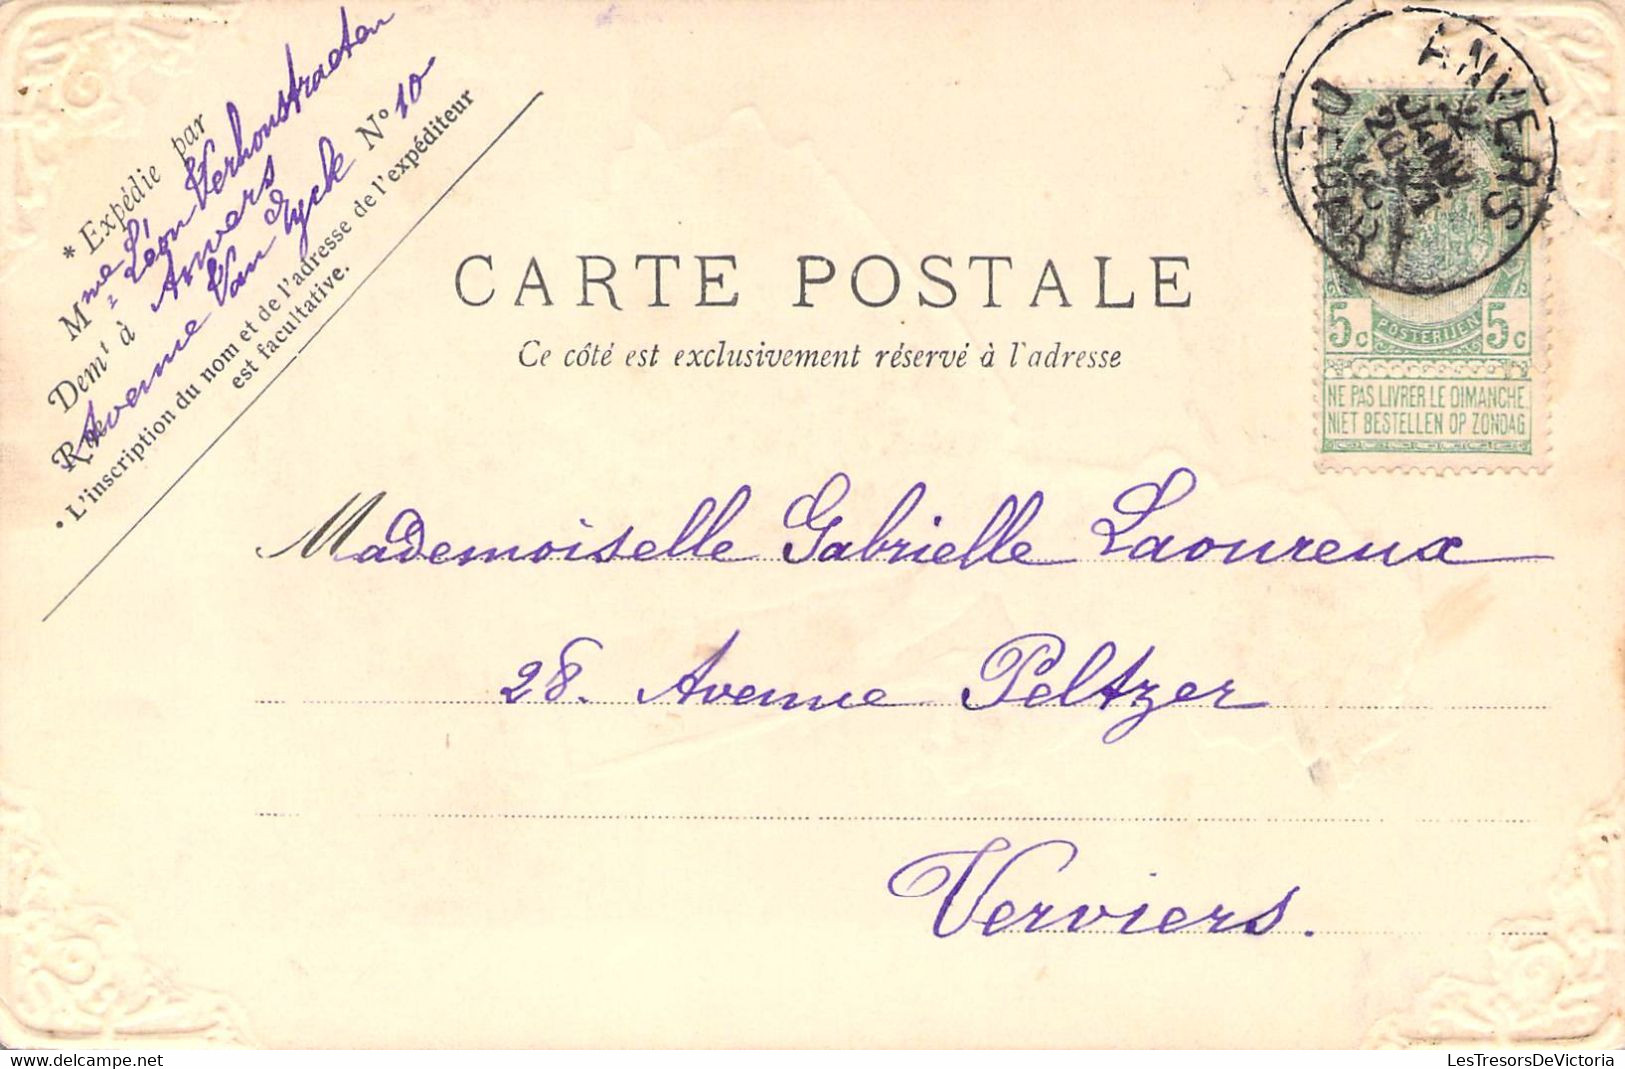 * Expédie par
Mme Léon Verhoustraeten
Demt à Anvers
Rue Avenue Van Eyck No 10
• L'inscription du nom et de l'adresse de l'expéditeur
est facultative.
CARTE POSTALE
Ce côté est exclusivement réservé à l'adresse
ANVERS
JANV
5c POSTERIJEN 5c
NE PAS LIVRER LE DIMANCHE
NIET BESTELLEN OP ZONDAG
Mademoiselle Gabrielle Laoureux
28. Avenue Peltzer
Verviers.
LesTresorsDeVictoria